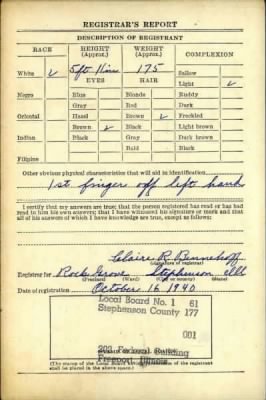 REGISTRAR'S REPORT
DESCRIPTION OF REGISTRANT
RACE HEIGHT (Approx.) WEIGHT (Approx.) COMPLEXION
White ✓ 5 ft Nine 175 Sallow
EYES HAIR Light ✓
Negro Blue Blonde Ruddy
Gray Red Dark
Oriental Hazel Brown ✓ Freckled
Brown ✓ Black Light brown
Indian Black Gray Dark brown
Bald Black
Filipino
Other obvious physical characteristics that will aid in identification
1st finger off left hand
I certify that my answers are true; that the person registered has read or has had
read to him his own answers; that I have witnessed his signature or mark and that
all of his answers of which I have knowledge are true, except as follows:
Claire R.
(Signature of registrar)
Registrar for Rock Grove Stephenson Ill
(Precinct) (Ward) (City or county) (State)
Date of registration October 16 1940
Local Board No. 1 61
Stephenson County 177
001
203 Federal Building
Freeport, Illinois
(The stamp of the Local Board having jurisdiction of the registrant
shall be placed in the above space.)